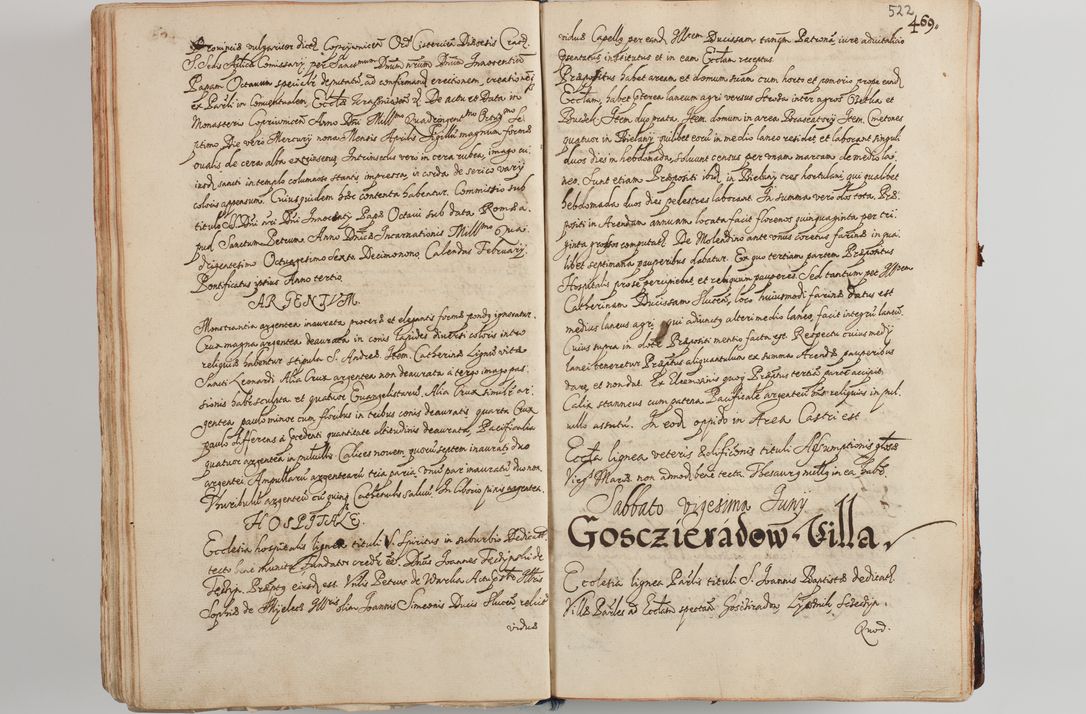 Prouinciæ vulgariter dictæ Coprzywnicen Ord Cistercien Diocesis Crac.
S. Sedis Aplicæ Comissarij per Sanctmum Dnum nrum Dnum Innocentiũ
Papam Octauum specialr deputatũ, ad confirmandã erectionem, creationẽ
ex Parli in Conuentualem, Ecctæ De actu et Data in
Monasterio Coprzywnicen Anno Dni Millmo Quadringentmo Octugmo Se
ptimo Die vero Mercurij nona Mensis Aprilis Sigillũ magnum formæ
oualis de cera alba extrinsecus, Intrinsecus vero in cera rubea, imago cu
iusd sancti in templo columnoso stantis impressa, in corda de serico varij
coloris appensum. Cuiusquidem hic contenta habentur. Commissio sub
titulo S. Dni nri Dni Innocentij Papæ Octaui sub data Romæ a
pud Sanctum Petrum Anno Dnicæ Incarnationis Millmo Qua
dringentesimo Octuagesimo Sexto Decimonono Calendas Februarij
Pontificatus ipsius Anno tertio.
ARGENTVM.
Monstrantia argentea inaurata proceræ et elegantis formæ pondꝫ ignoratur.
Crux magna argentea deaurata in conis lapides diuersi coloris intro
religuiæ habentur stipula S. Andreæ. Item Catherinæ Lignũ vitæ
Sancti Leonardi. Alia Crux argentea non deaurata à tergo imago pas
sionis habet sculpta et quatuor Euangelistarum. Alia Crux similiter ar
gentea paulo minor cum floribus in tribus conis deauratis quarta Crux
paulo differens à precedenti quantitate altitudinis deaurata, Pacificalia
quatuor argentea in Calices nouem quorũ septem inaurati duo
argentei Ampullarũ argentearũ tria paria, vnũ par inauratũ duo non
Thuribulũ argenteũ cũ quinqꝫ Cathenulis saluũ. In liborio pixis argentea.
HOSPITALE.
Ecclesia hospitalis lignea tituli S. Spiritus in suburbio Dedicata
tecto bene munita Fundator creditr ee. Dnus Joannes
Petrus de Warcha Actu
Sophiæ de Mielecz Illris olim Joannis Simeonis Ducis Slucen relict
viduæ

522
469.
viduæ Capellæ per eand Illrem Ducissam tanqm Patronã iure aduitalicio
psentatus, institutus et in eam Ecclam receptus.
Præpositus habet aream et domum suam cum horto et pomerio prope eand
Ecclam, habet preterea laneum agri versus Studa inter agros Cietla et
Item duo prata, Item domum in area Item Cmetones
quatuor in Bielany quilibet eorũ in medio laneo residet, et laborant singuli
duos dies in hebdomada, soluunt census per vnam marcam de medio la
neo. Sunt etiam Præpositi ibid in Bielany tres hortulani, qui qualibet
hebdomada duos dies pedestres laborant. In summa vero dos tota Præ
positi in Arendam annuam locata facit florenos quinquaginta per tri
ginta grossos computatꝫ. De Molendino ante vnus coretus farinæ in qua
libet septimana pauperibus dabatur. Ex quo tertiam partem Præpositus
Hospitalis pro se percipiebat, et reliquum pauperes. Sed tantum per Illrem
Catherinam Ducissam Slucen, loco huiusmodi farinæ datus est
medius laneus agri, qui adiunctꝫ alteri medio laneo, facit integrũ laneũ.
Cuius supra in dote Præpositi mentio facta est. Respectu cuius medij
lanei teneretur Præptus aliquantulum ex summa Arendæ pauperibus
dare, et non dat. Ex Eleemosinis quoqꝫ Præptus tertiã partẽ accipit.
Calix stanneus cum patena Pacificale argenteũ hns reliquias in pul
uillo assutũ. In eod oppido in Area Castri est
Eccla lignea veteris ædificionis tituli Assumptionis glosæ
Virgs Mariæ non admod bene tecta. Thesaurꝫ nullꝫ in ea habr.
Sabbato vigesima Junij
Gosczieradow Villa.
Ecclesia lignea Parlis tituli S. Joannis Baptistæ dedicat.
Villæ Parles ad Ecclam spectan Goscziradow,
Quod.